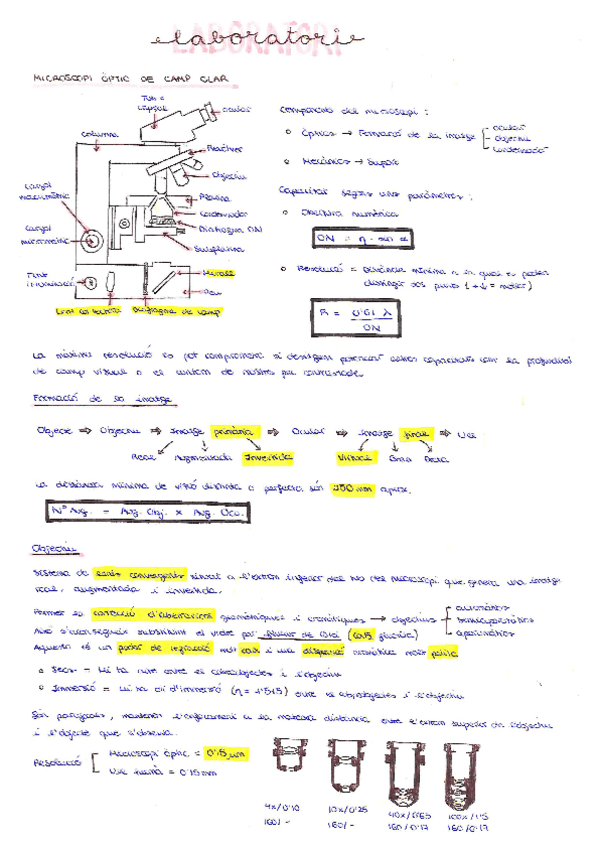 laboratori
LABORATORI
MICROSCOPI ÒPTIC DE CAMP CLAR
Tub o
ocular
columna
Revòlver
Objectiu
Platina
Condensador
Diafragma ON
Subplatina
Cargol
macromètric
Cargol
micromètric
Font
il·luminació
Mirall
Peu
Diafragma de camp
Components del microscopi:
o Òptics → Formació de la imatge
ocular
objectiu
condensador
o Mecànics → Suport
Capacitat segons uns paràmetres:
o Obertura numèrica
ON = η · sin α
o Resolució = Distància mínima a la qual es poden
distingir dos punts (+↓ = millor)
R = 0'61 λ / ON
La màxima resolució es pot comprometre si desitgem potenciar altres capacitats com la profunditat
de camp visual o el contrast
Formació de la imatge
Objecte ⇒ Objectiu ⇒ Imatge primària ⇒ Ocular ⇒ Imatge final ⇒ Ull
Real Augmentada Invertida Virtual Dreta
La distància mínima de visió distinta o perfecta són 250 mm aprox.
Nº Aug. = Aug. Obj. x Aug. Ocu.
Objectiu
Sistema de lents convergents situat a l'extrem inferior del tub del microscopi que genera una imatge
real, augmentada i invertida.
correcció d'aberracions geomètriques i cromàtiques → objectius
acromàtics
semiapocromàtics
apocromàtics
Això s'aconsegueix substituint el vidre per
Aquesta té un poder de refracció molt i una dispersió cromàtica molt petita
o Secs → Hi ha aire entre el cobreobjectes i l'objectiu
o Immersió = Hi ha oli d'immersió (η = 1'515) entre el cobreobjectes i l'objectiu
Són parfocals, mantenen l'enfocament a la mateixa distància entre l'extrem superior de l'objectiu
i l'objecte que s'observa.
Resolució
Microscopi òptic = 0'5 μm
Ull humà = 0'15 mm
4x/0'10
160/-
10x/0'25
160/-
40x/0'65
160/0'17
100x/1'3
160/0'17